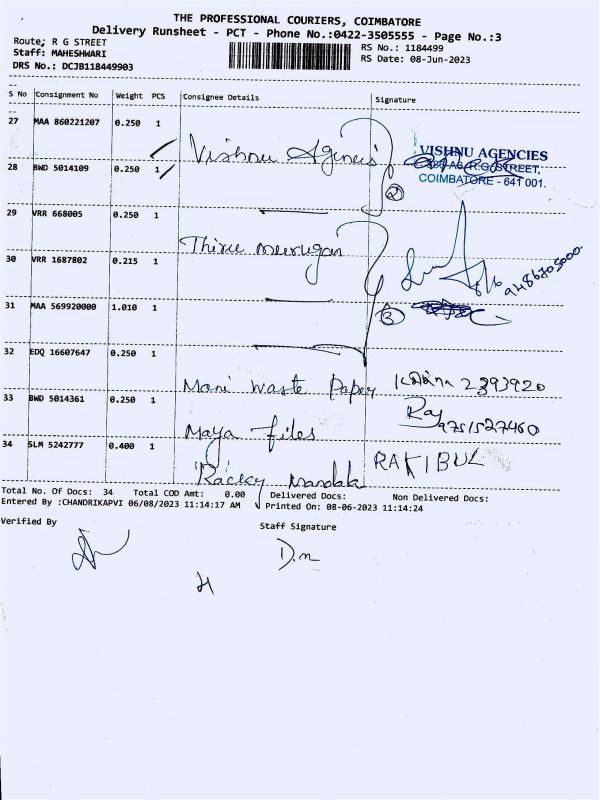 THE PROFESSIONAL COURIERS, COIMBATORE
Delivery Runsheet - PCT - Phone No.:0422-3505555 - Page No.:3
Route; R G STREET
RS No.: 1184499
Staff: MAHESHWARI
RS Date: 08-Jun-2023
DRS No.: DCJB118449903
S No Consignment No Weight PCS Consignee Details Signature
27 MAA 860221207 0.250 1
Vishnu Agencies
VISHNU AGENCIES
R.G. STREET,
COIMBATORE - 641 001.
28 BWD 5014109 0.250 1
2
29 VRR 668005 0.250 1
Thiru murugan
30 VRR 1687802 0.215 1
31 MAA 569920000 1.010 1
3
32 EDQ 16607647 0.250 1
Mani Waste Paper 2393920
33 BWD 5014361 0.250 1
Maya files Raj 9751527460
34 SLM 5242777 0.400 1
Racky Mandal RAKIBUL
Total No. Of Docs: 34 Total COD Amt: 0.00 Delivered Docs: Non Delivered Docs:
Entered By :CHANDRIKAPVI 06/08/2023 11:14:17 AM Printed On: 08-06-2023 11:14:24
Verified By Staff Signature
D.m